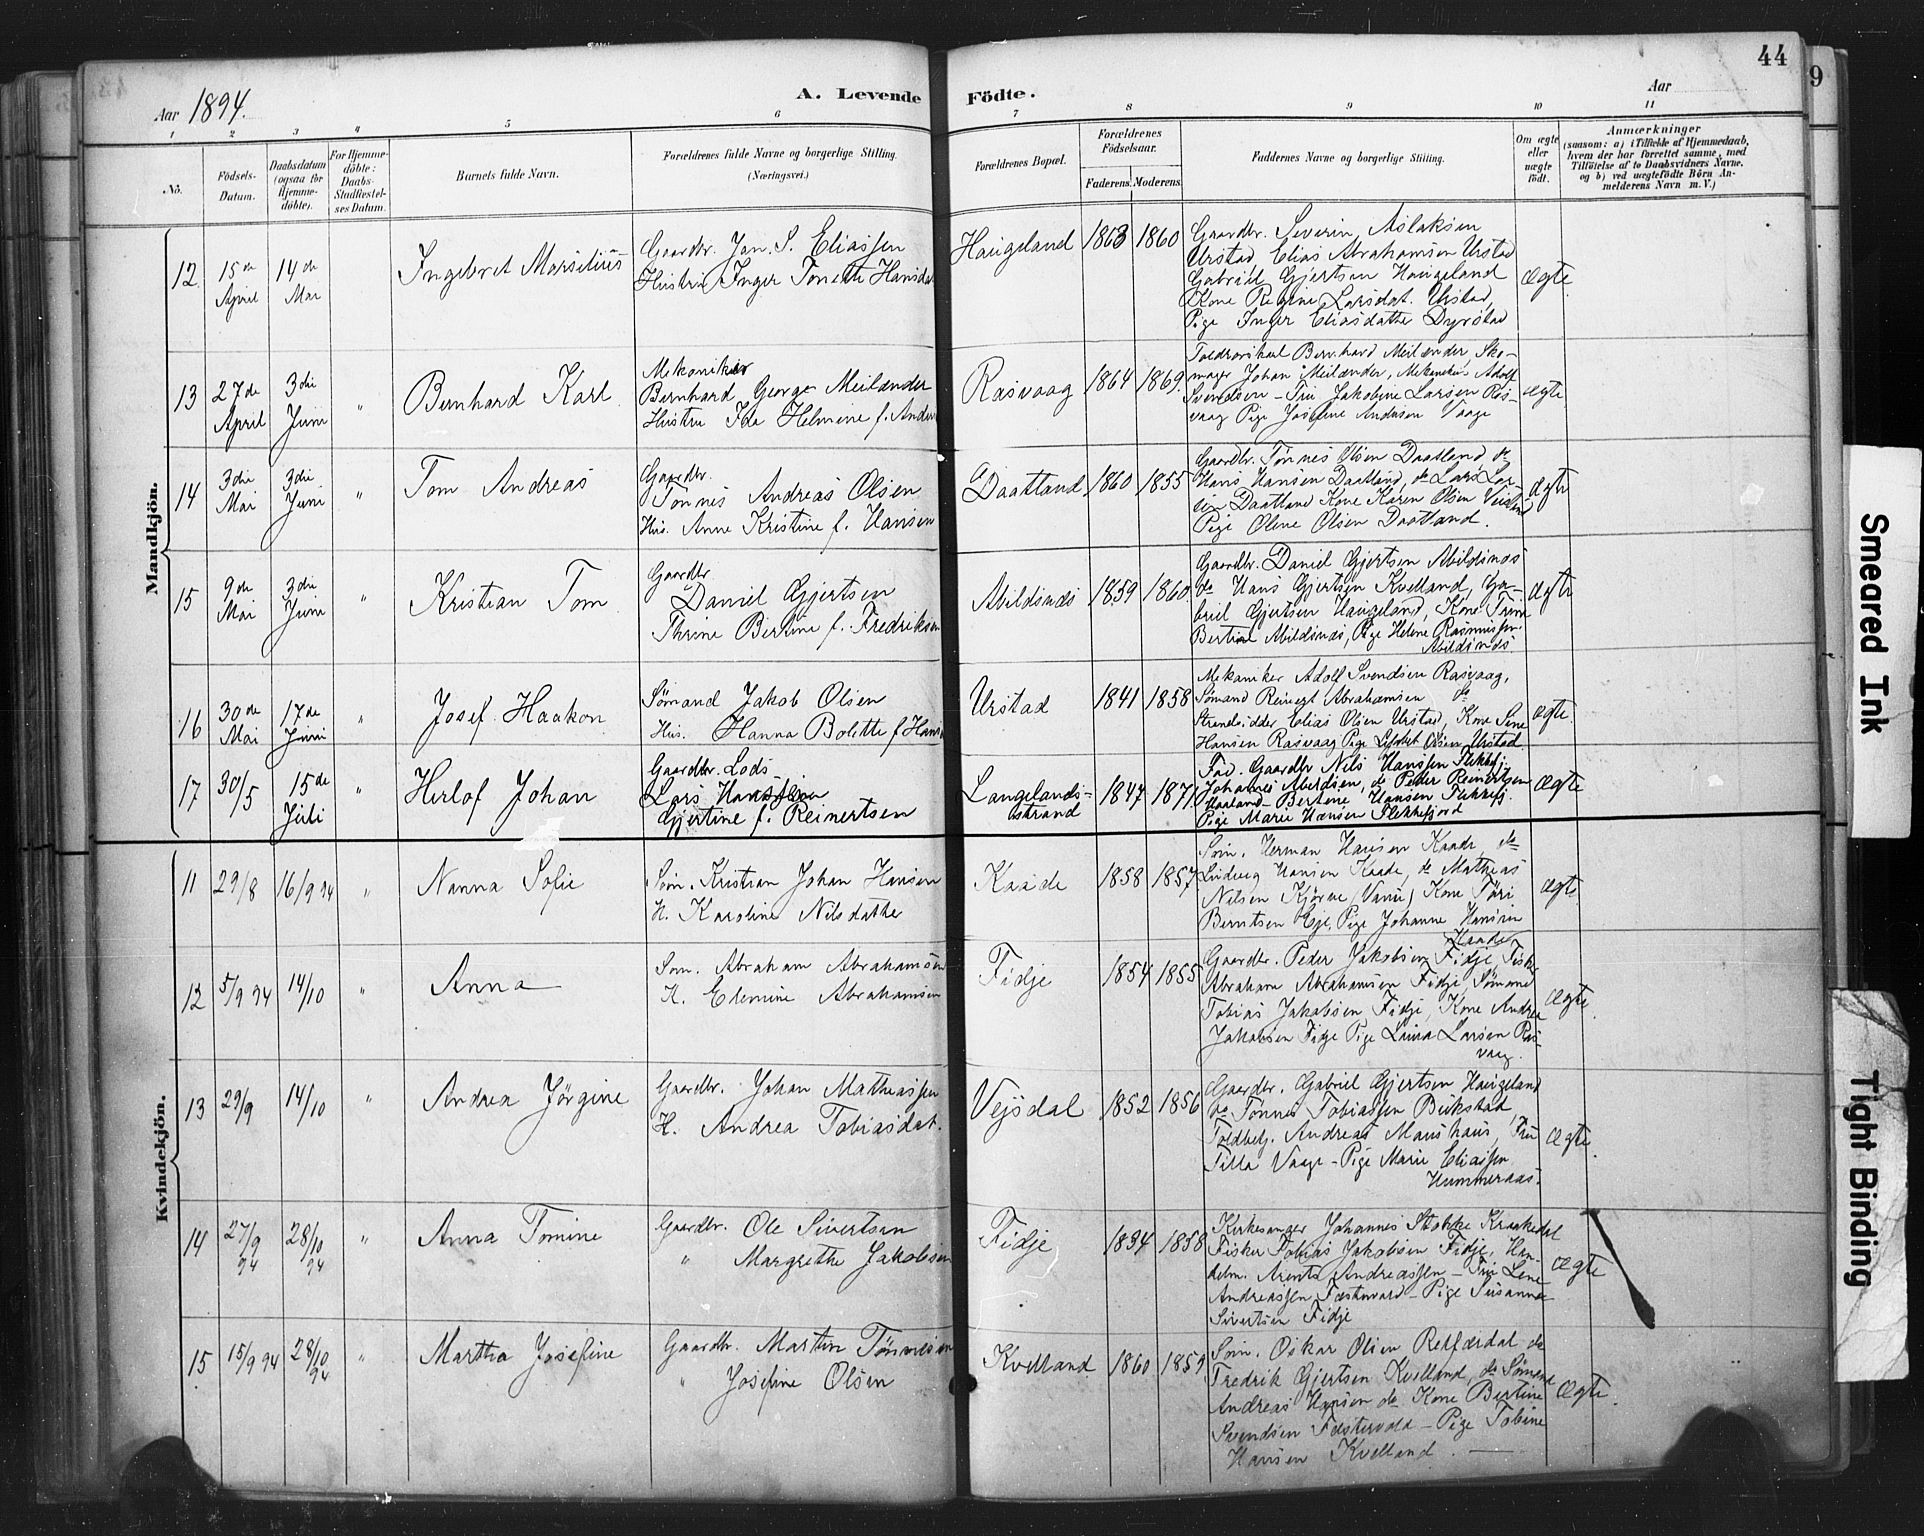 44
9
Aar 1894.
A. Levende Födte.
Aar
1 2 3 4 5 6 7 8 9 10 11
No.
Födsels-Datum.
Daabsdatum (ogsaa for Hjemme-döbte).
For Hjemme-döbte: Daabs-Stadfæstel-ses Datum.
Barnets fulde Navn.
Forældrenes fulde Navne og borgerlige Stilling. (Næringsvei.)
Forældrenes Bopæl.
Forældrenes Födselsaar.
Faderens. Moderens.
Faddernes Navne og borgerlige Stilling.
Om ægte eller uægte födt.
Anmærkninger
(saasom: a) i Tilfælde af Hjemmedaab,
hvem der har forrettet samme, med
Tilföielse af to Daabsvidners Navne,
og b) ved uægtefödte Börn An-
melderens Navn m. V.)
Mandkjön.
12 15de April 14de Mai Ingebret Marselius
Gaardbr. Jan. S. Eliassen
Hustru Inger Tonette Hansda
Haugeland 1863 1860
Gaardbr. Severin Aslaksen
Urstad, Elias Abrahamsen Urstad
Gabriel Gjertsen Haugeland
Kone Regine Larsdat. Urstad,
Pige Inger Eliasdatter Dyrstad
Ægte
13 27de April 3die Juni " Bernhard Karl
Mekaniker
Bernhard George Meilænder
Hustru Ida Helmine f. Anders
Rasvaag 1864 1869.
Bernhard Meilænder, Sko-
mager Johan Meilænder, Mekaniker Adolf
Svendsen - Fru Jakobine Larsen Ras-
vaag Pige Josefine Andersen Vaage
Ægte
14 3die Mai 3die Juni " Tom Andreas
Gaardbr.
Tønnes Andreas Olsen
Hus. Anne Kristine f. Hansen
Daatland 1860 1855
Gaardbr. Tønnes Olsen Daatland do
Hans Hansen Daatland, do Lars Lar-
sen Daatland Kone Karen Olsen
Pige Oline Olsen Daatland.
Ægte
15 9de Mai 3die Juni " Kristian Tom
Gaardbr
Daniel Gjertsen
Thrine Bertine f. Fredriksen
Abildsnæs 1859 1860.
Gaardbr. Daniel Gjertsen Abildsnæs
do Hans Gjertsen Kvelland, Ga-
briel Gjertsen Haugeland, Kone Trine
Bertine Abildsnæs, Pige Helene Rasmussen
Abildsnæs
Ægte
16 30de Mai 17de Juni " Josef Haakon
Sømand Jakob Olsen
Hus. Hanna Bolette f. Hans
Urstad 1841 1858
Mekaniker Adolf Svendsen Rasvaag,
Sømand Reinert Abrahamsen do
Strandsidder Elias Olsen Urstad, Kone Sine
Hansen Rasvaag Pige Olsen Urstad
Ægte.
17 30/5 15de Juli " Herlof Johan
Gaardbr. Lods
Lars
Gjertine f. Reinertsen
Langelands-
strand 1847 1871.
Fad. Gaardbr Nils Hanssen Flekkefj.
Johannes, do Peder Reinertsen
- Bertine Hansen Flekkefj.
Pige Marie Hansen Flekkefjord
Ægte
Kvindekjön.
11 29/8 16/9 94 " Nanna Sofie
Søm. Kristian Johan Hansen
H. Karoline Nilsdatter
Kaade 1858 1857
Søm. Herman Hansen Kaade, do
Ludvig Hansen Kaade, do Mathias
Nilsen Kjørve (Vanse) Kone
Berntsen Eje, Pige Johanne Hansen
Kaade
Ægte
12 5/9 94 14/10 " Anna
Søm. Abraham Abrahamsen
H. Elemine Abrahamsen
Fidje 1854 1855
Gaardbr. Peder Jakobsen Fidje Fisker
Abraham Abrahamsen Fidje, Sømand
Tobias Jakobsen Fidje, Kone Andrea
Jakobsen Fidje Pige Laura Larsen Ras-
vaag.
Ægte.
13 29/9 14/10 " Andrea Jørgine
Gaardbr. Johan Mathiassen
H. Andrea Tobiasdat.
Vejsdal 1852 1856
Gaardbr. Gabriel Gjertsen Haugeland
do Tønnes Tobiassen Bukstad
Toldbetj. Andreas Maushaus, Fru
Tilla Vaage - Pige Marie Eliassen
Hummeraas.
Ægte.
14 27/9 94 28/10 94 " Anna Tomine
Gaardbr. Ole Sivertsen
" Margrethe Jakobsen
Fidje 1834 1858
Kirkesanger Johannes Stokke Kraakedal
Fisker Tobias Jakobsen Fidje, Han-
delm. Arents Andreassen - Fru Lene
Andreassen - Pige Susanne
Sivertsen Fidje
Ægte
15 15/9 94 28/10 94 " Martha Josefine
Gaardbr. Martin Tønnesen
" Josefine Olsen
Kvelland 1860 1859
Søm. Oskar Olsen Refærdal do
Fredrik Gjertsen Kvelland, do Sømand
Andreas Hansen do Kone Bertine
Svendsen - Pige Tobine
Hansen Kvelland.
Ægte.
Smeared Ink
Tight Binding